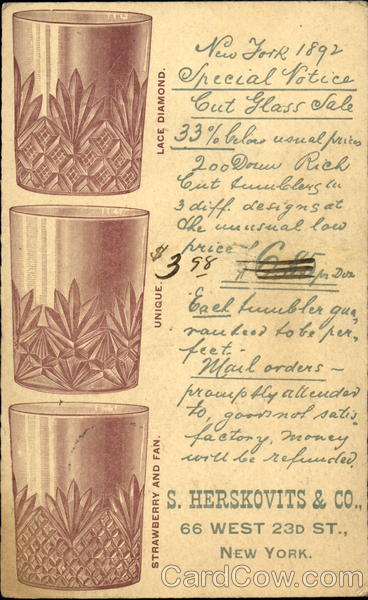 LACE DIAMOND.
UNIQUE.
STRAWBERRY AND FAN.
New York 1892
Special Notice
Cut Glass Sale
33% below usual prices
200 Dozen Rich
Cut tumblers in
3 diff. designs at
the unusual low
price of
$3.98 pr Doz
Each tumbler gua-
ranteed to be per-
fect.
Mail orders –
promptly attended
to, goods not satis-
factory, money
will be refunded.
S. HERSKOVITS & CO.,
66 WEST 23D ST.,
NEW YORK.
CardCow.com